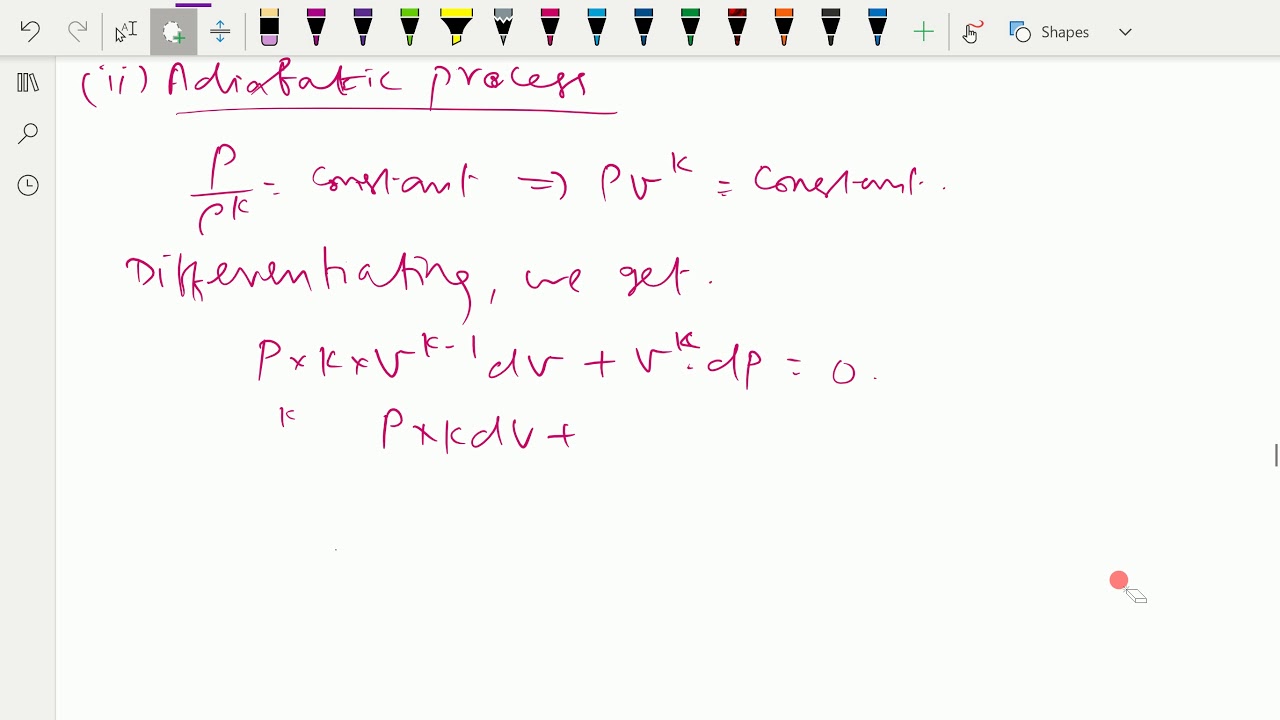 Shapes
(ii) Adiabatic process
P/ρ^k = constant ⇒ PV^k = constant.
Differentiating, we get.
P×k×V^k-1 dv + V^k. dp = 0.
k P×k dv +